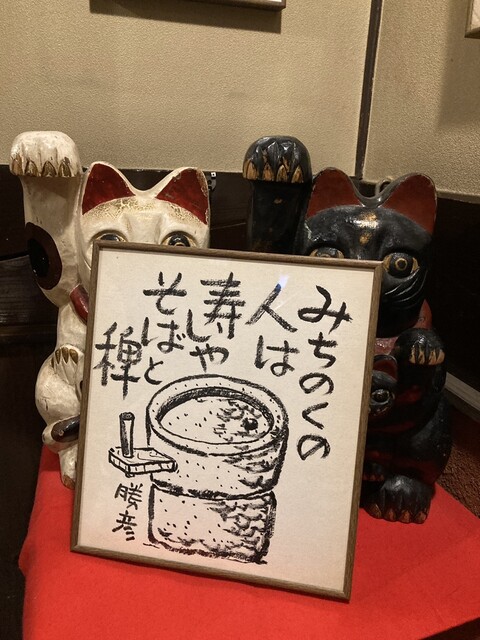 みちのくの
人は
寿しや
そばと
稗
勝彦